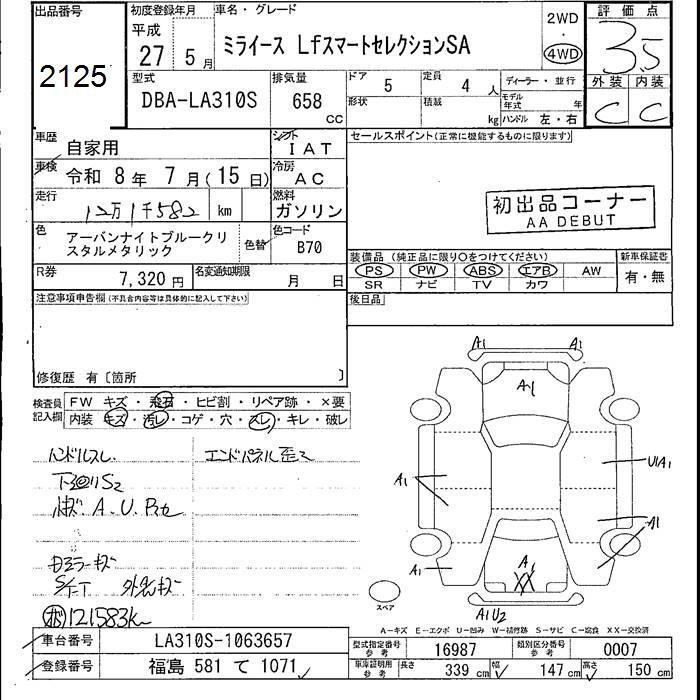 出品番号
2125
初度登録年月
平成
27 5月
車名・グレード
ミライース LfスマートセレクションSA
2WD
・
4WD
評価点
3.5
外装 内装
C C
型式
DBA-LA310S
排気量
658 cc
ドア 5
形状
定員 4 人
積載 kg
ディーラー・並行
モデル年式 年
ハンドル 左・右
車歴 自家用
シフト IAT
車検 令和 8年 7月(15日)
冷房 AC
走行 12万1千582 km
燃料 ガソリン
色 アーバンナイトブルークリスタルメタリック
色替
色コード B70
R券 7,320円
名変通知期限 月 日
セールスポイント(正常に機能するものに限ります)
初出品コーナー
AA DEBUT
装備品(純正品に限り○をつけてください)
PS PW ABS エアB AW
SR ナビ TV カワ
新車保証書
有・無
後日品
注意事項申告欄(不具合内容等は具体的に記入して下さい)
修復歴 有〔箇所 〕
検査員記入欄
FW キズ・飛石・ヒビ割・リペア跡・×要
内装 キズ・汚レ・コゲ・穴・スレ・キレ・破レ
ハンドルスレ
エンドパネル歪
A.U.
121583k
A1 A1
A1
A1
U1A1
A1
A1
A1
XX
A1U2
スペア
A-キズ E-エクボ U-凹み W-補修跡 S-サビ C-腐食 XX-交換済
車台番号 LA310S-1063657
登録番号 福島 581 て 1071
型式指定番号 参考 16987
類別区分番号 参考 0007
車庫証明用 参考 長さ 339 cm 幅 147 cm 高さ 150 cm